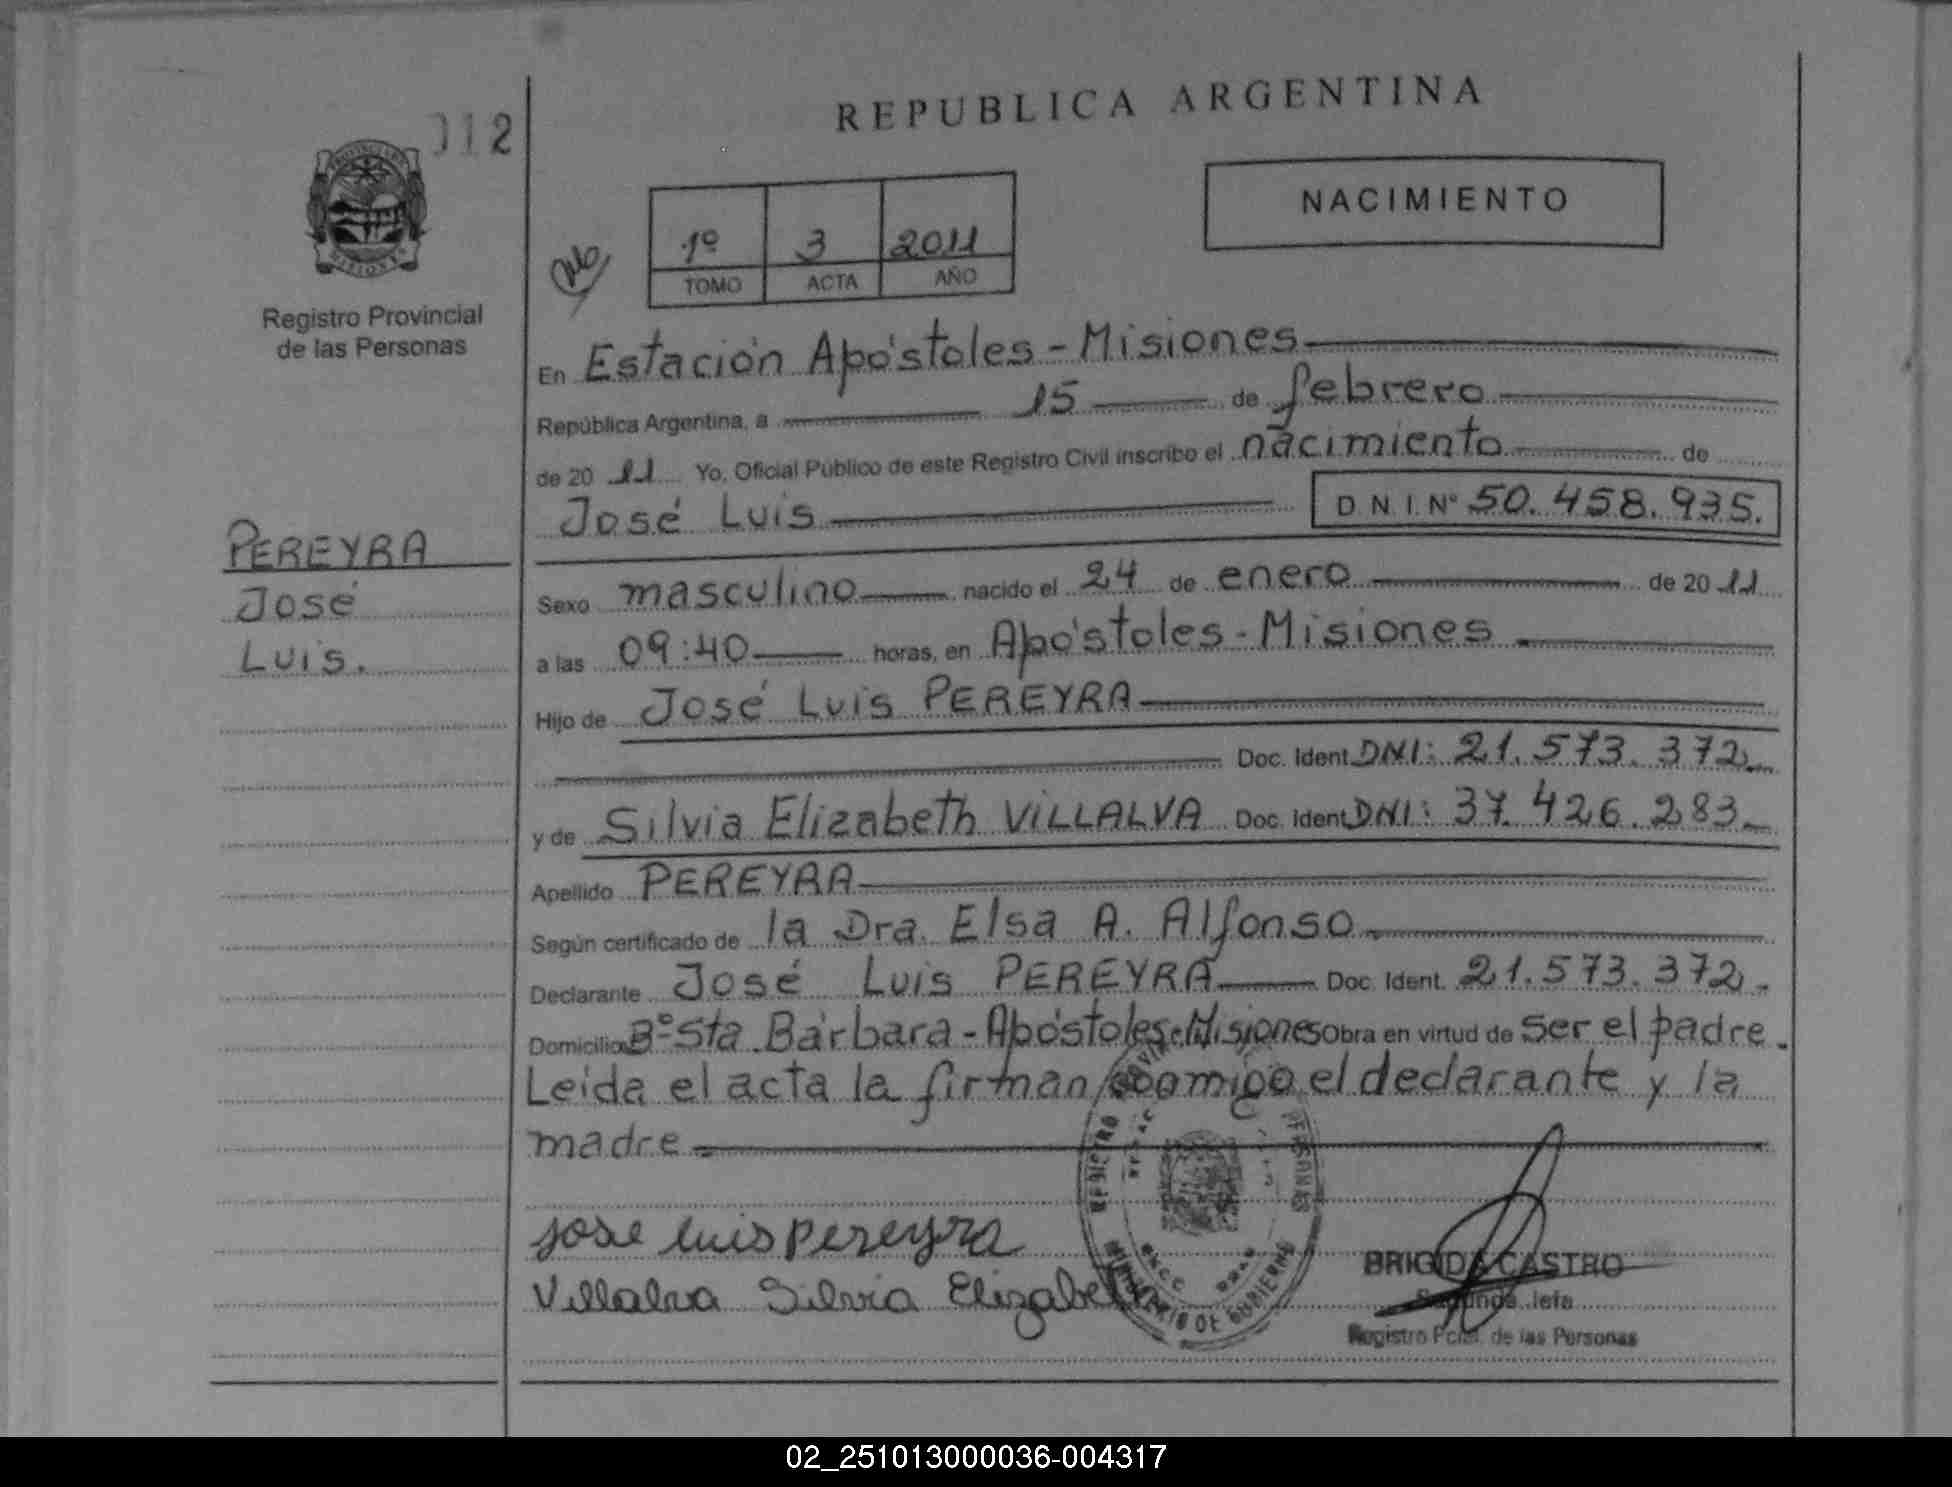 REPUBLICA ARGENTINA
012
NACIMIENTO
PROVINCIA DE
MISIONES
1º 3 2011
TOMO ACTA AÑO
Registro Provincial
de las Personas
En Estación Apóstoles - Misiones
República Argentina, a 15 de febrero
de 20 11 Yo, Oficial Público de este Registro Civil inscribo el nacimiento de
José Luis D.N.I. Nº 50.458.935.
PEREYRA
José
Luis.
Sexo masculino nacido el 24 de enero de 20 11
a las 09:40 horas, en Apóstoles - Misiones
Hijo de José Luis PEREYRA
Doc. Ident. DNI: 21.573.372
y de Silvia Elizabeth VILLALVA Doc. Ident. DNI: 37.426.283
Apellido PEREYRA
Según certificado de la Dra. Elsa A. Alfonso
Declarante José Luis PEREYRA Doc. Ident. 21.573.372.
Domicilio Bº Sta Bárbara - Apóstoles - Misiones Obra en virtud de ser el padre.
Leída el acta la firman conmigo el declarante y la
madre
REGISTRO PERSONAS
MINISTERIO DE GOBIERNO
jose luis pereyra
Villalva Silvia Elizabeth
BRIGIDA CASTRO
Segunda Jefa
Registro Pcial. de las Personas
02_251013000036-004317